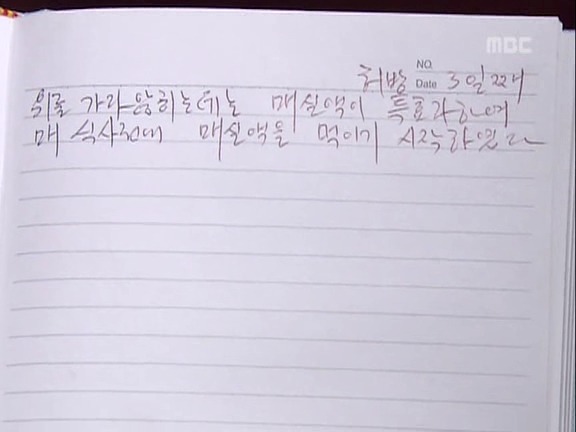 MBC
NO.
처방 Date 3일째
위를 가라앉히는데는 매실액이 특효라하여
매 식사전에 매실액을 먹이기 시작하였다